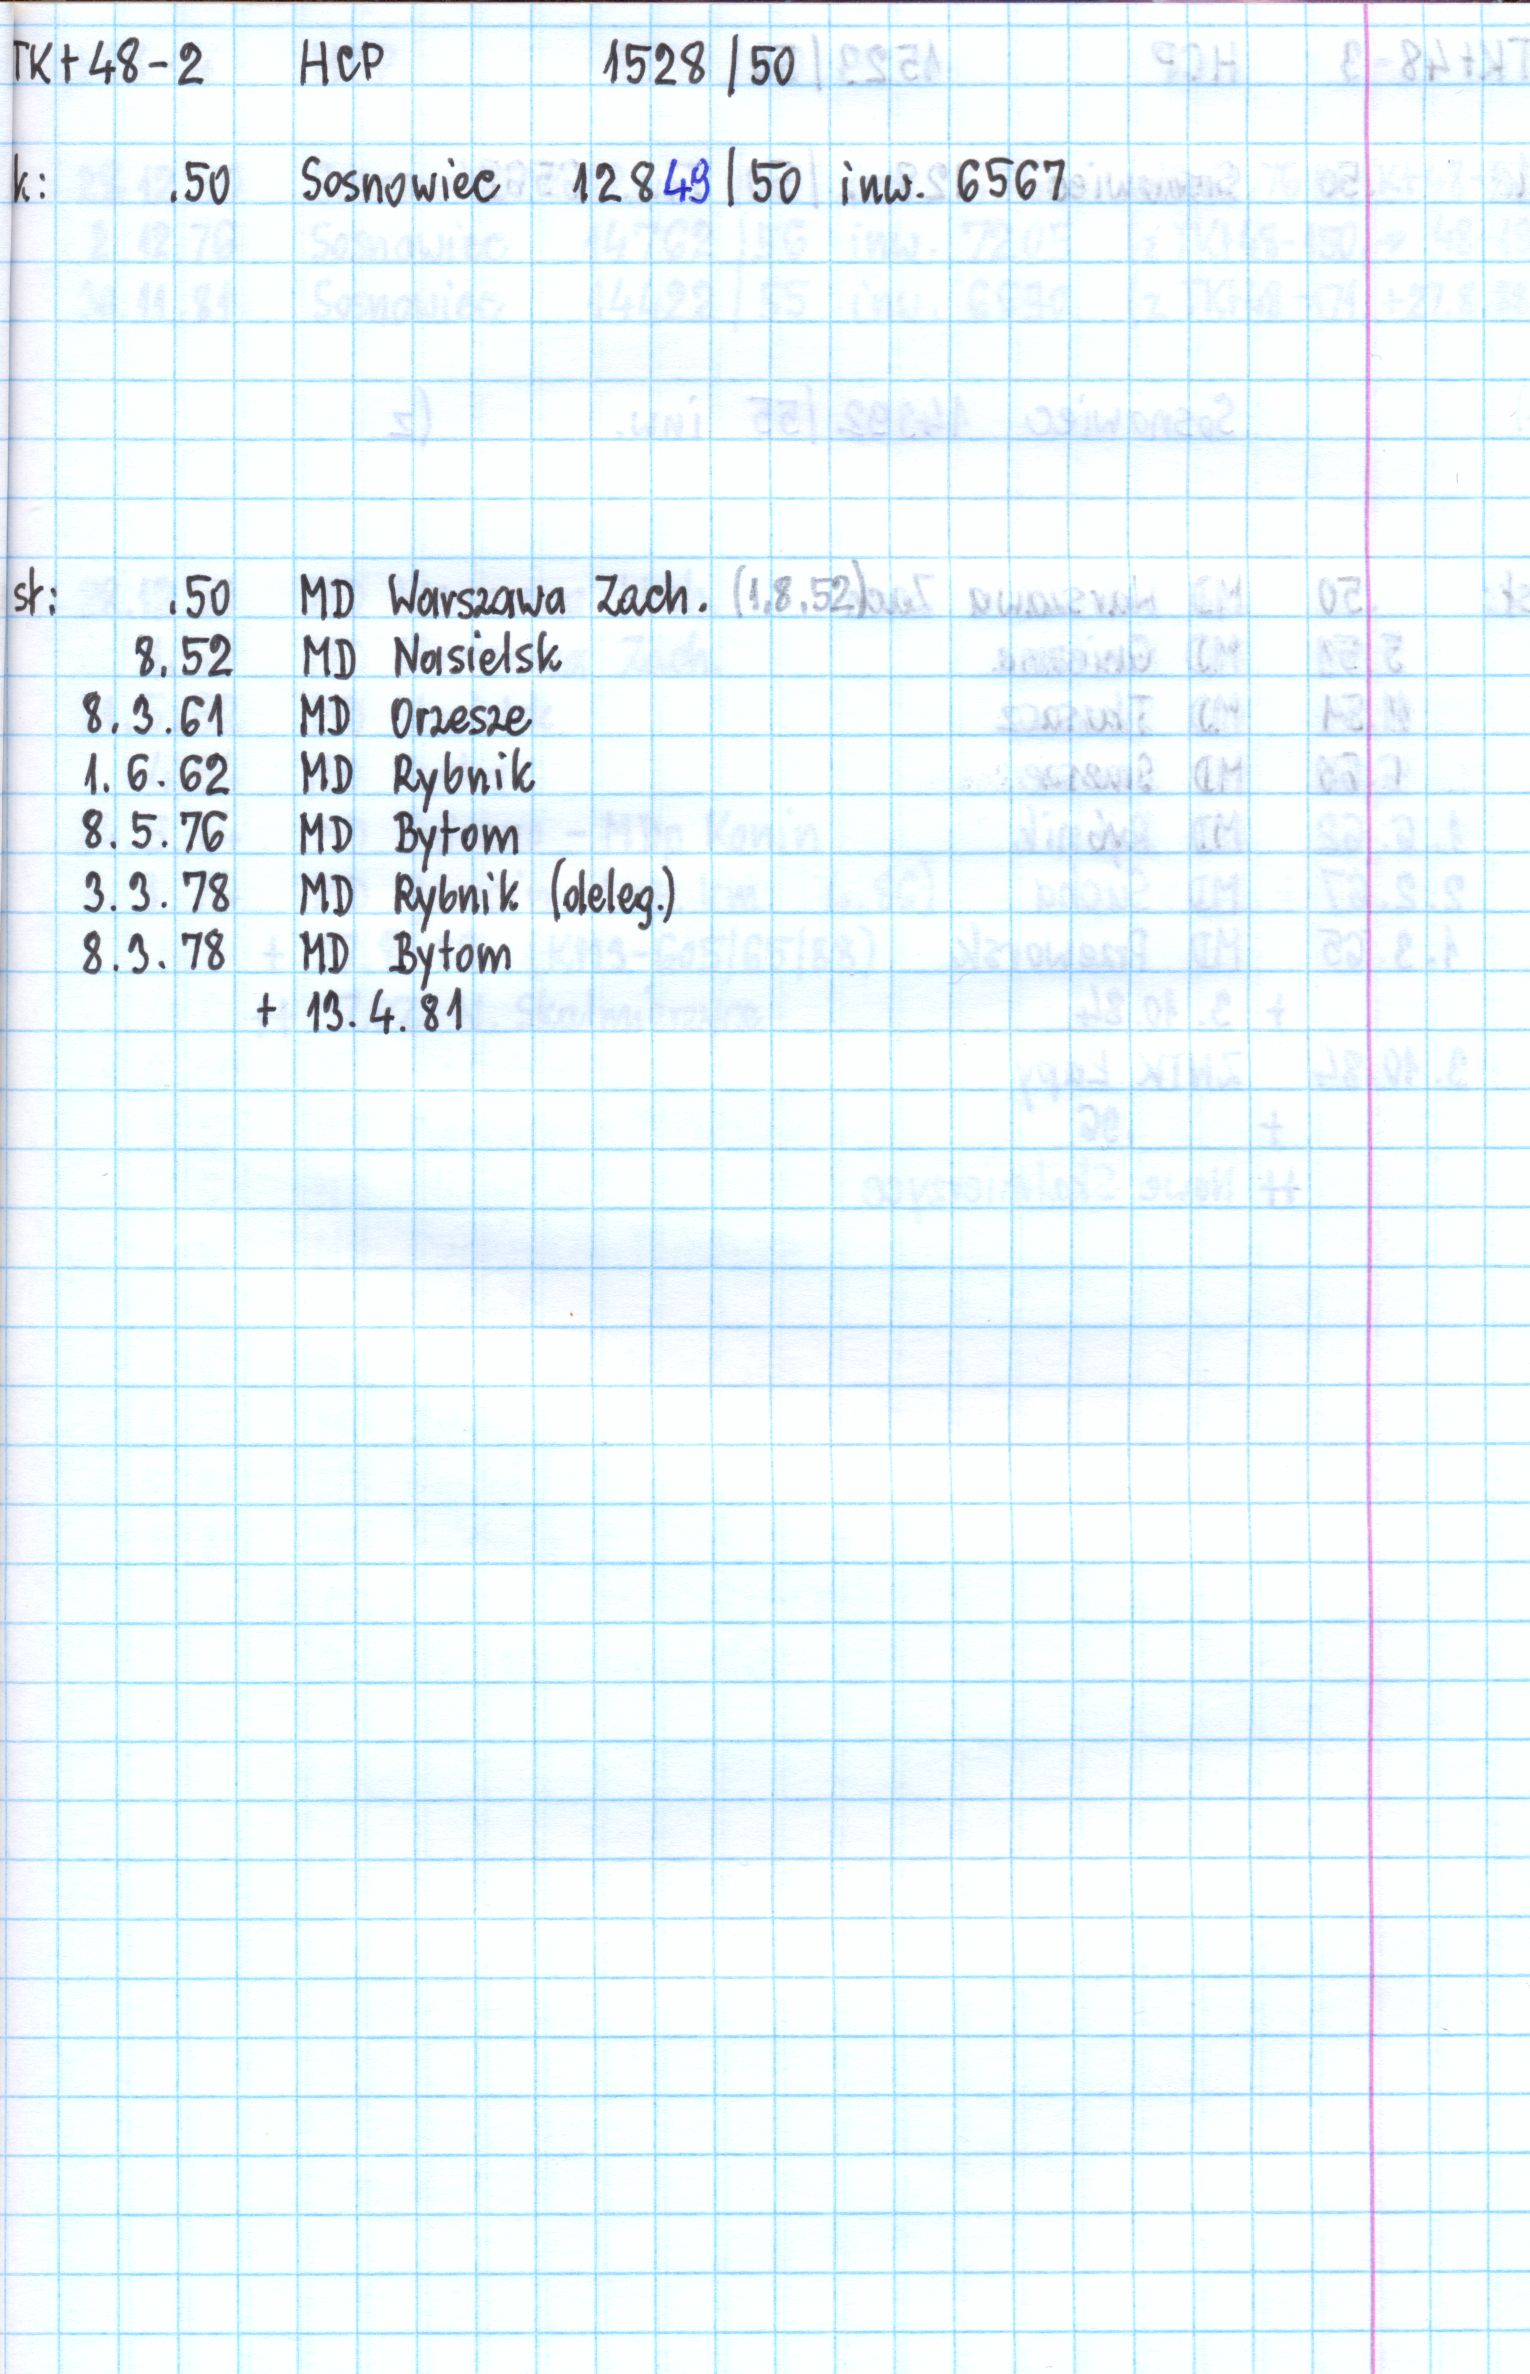 TKt48-2 HCP 1528/50
k: .50 Sosnowiec 12849/50 inw. 6567
st: .50 MD Warszawa Zach. (1.8.52)
8.52 MD Nasielsk
8.3.61 MD Orzesze
1.6.62 MD Rybnik
8.5.76 MD Bytom
3.3.78 MD Rybnik (deleg.)
8.3.78 MD Bytom
+ 13.4.81